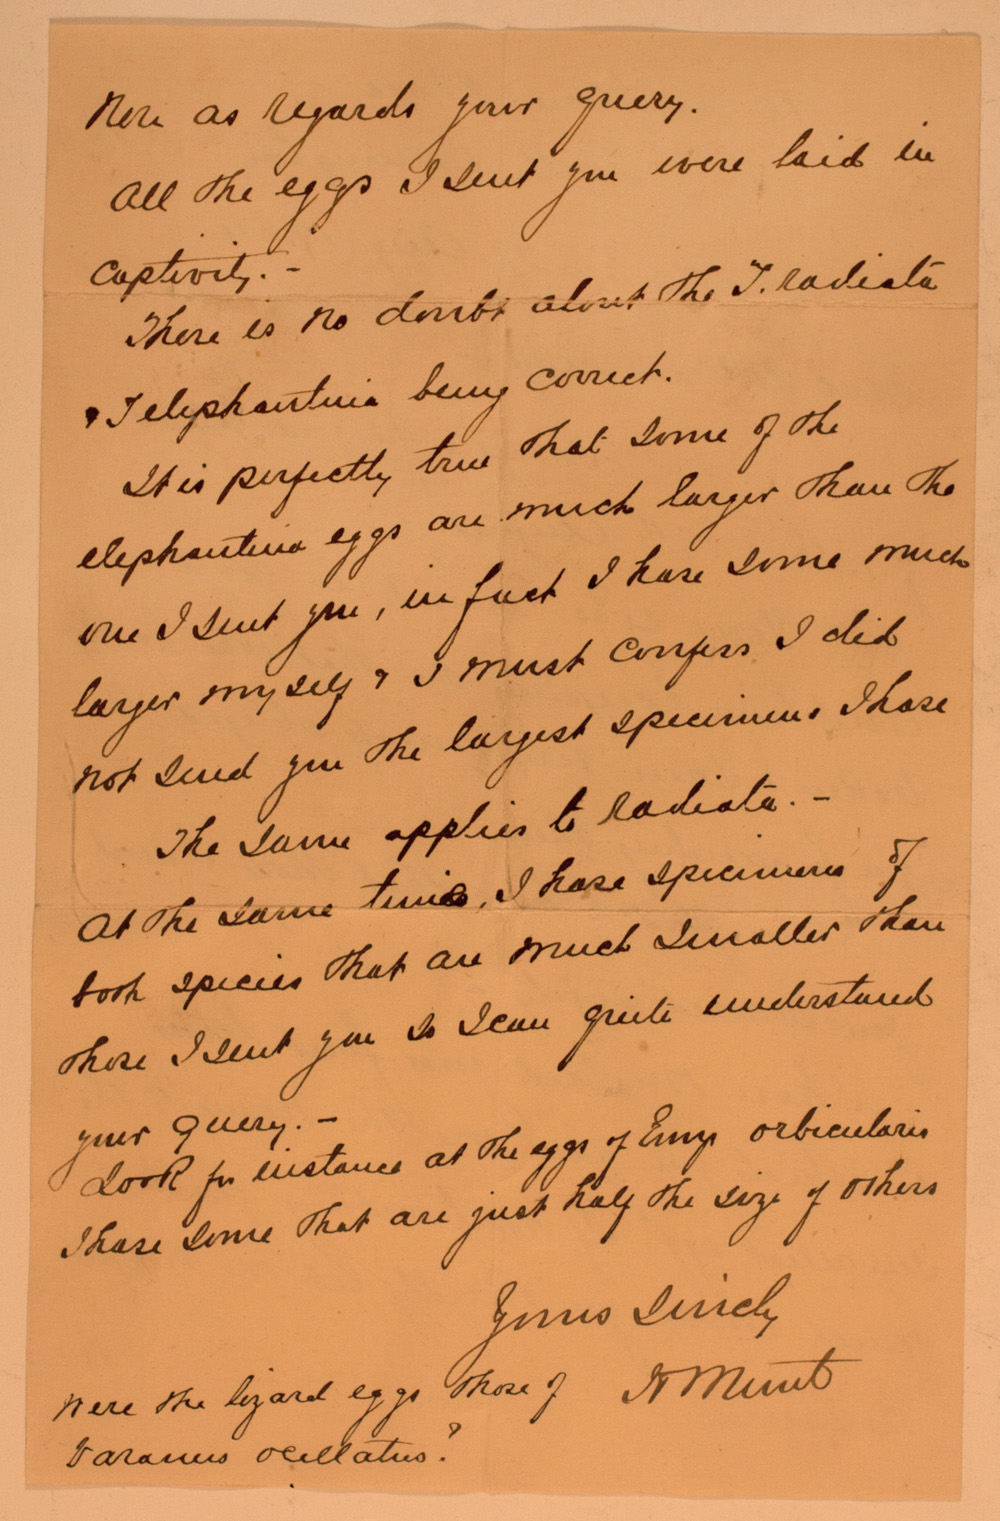 Now as regards your query.
All the eggs I sent you were laid in
captivity. -
There is no doubt about the T. radiata
& T elephantina being correct.
It is perfectly true that some of the
elephantina eggs are much larger than the
one I sent you, in fact I have some much
larger myself & I must confess I did
not send you the largest specimens I have
The same applies to radiata. -
At the same time, I have specimens of
both species that are much smaller than
those I sent you so I can quite understand
your query. -
Look for instance at the eggs of Emys orbicularis
I have some that are just half the size of others
Yours sincly
Were the lizard eggs those of
Varanus ocellatus?